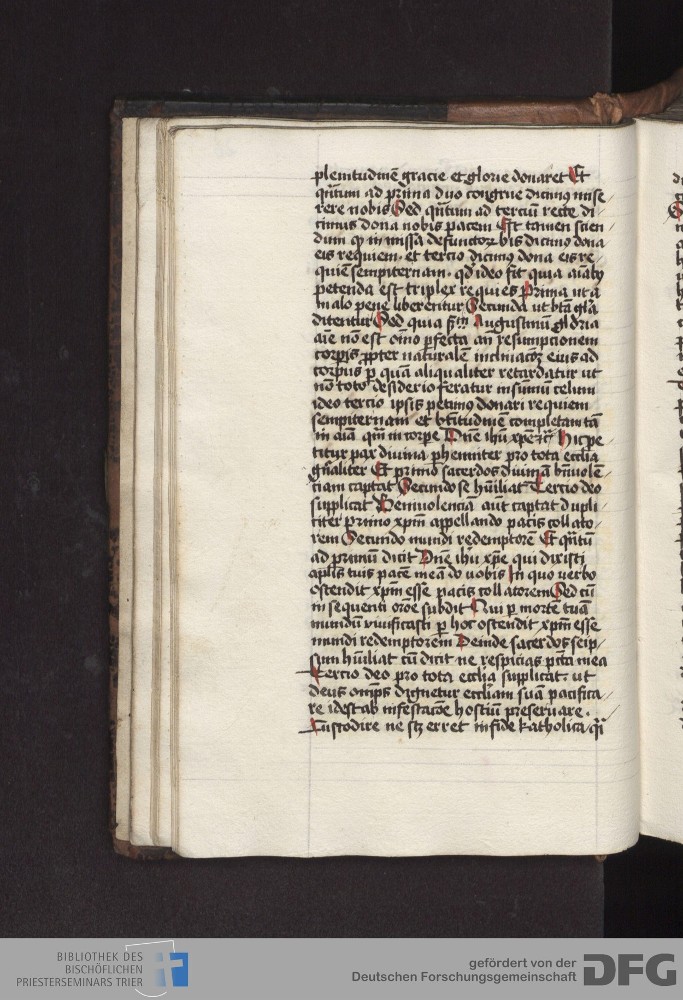 plenitudinē gracie et glorie donaret Et
qn̄tum ad prima duo congrue dicimꝯ mise
rere nobis Sed qn̄tum ad terciū recte di
cimus dona nobis pacem Est tamen scien
dum qꝫ in missa defunctoꝝ bis dicimꝯ dona
eis requiem et tercio dicimꝯ dona eis re
quiē sempiternam qd ideo fit quia aīabꝯ
petenda est triplex requies Prima ut a
malo pene liberentur Secunda ut btā glīa
ditentur Sed quia scd̄m Augustinū gloria
aīe non est oīno ꝑfecta an̄ resumpcionem
corpis ꝓpter naturalē inclinacōꝫ eius ad
corpus ꝑ quā aliqualiter retardatur ut
nō toto desiderio feratur in sūmū celum
ideo tercio ipsis petimꝯ donari requiem
sempiternam et btītudinē completam tā
in aīa qm̄ in corpe Dn̄e ihū xp̄e ⁊c̄ Hic pe
titur pax diuina phenniter pro tota ecclīa
gn̄aliter Et primo sacerdos diuinā bn̄iuolē
ciam captat Secundo se hūiliat Tercio deo
supplicat Beniuolenciā aūt captat dupli
citer Primo xp̄m appellando pacis collato
rem Secundo mundi redemptorē Et qn̄tū
ad primū dicit Dn̄e ihū xp̄e qui dixisti
apl̄is tuis pacē meā do uobis In quo uerbo
ostendit xp̄m esse pacis collatorem Sed cū
in sequenti orōe subdit Qui ꝑ mortē tuā
mundū uiuificasti ꝑ hoc ostendit xp̄m esse
mundi redemptorem Deinde sacerdos seip
sum hūiliat cū dicit ne respicias pctā mea
Tercio deo pro tota ecclīa supplicat ut
deus omps dignetur eccliam suā pacifica
re idest ab infestacōe hostiū preseruare
Custodire ne scꝫ erret in fide katholica qr̄
BIBLIOTHEK DES
BISCHÖFLICHEN
PRIESTERSEMINARS TRIER
gefördert von der
Deutschen Forschungsgemeinschaft
DFG